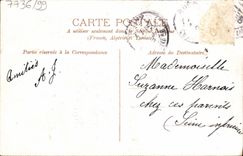 7736/99
CARTE POSTALE
A utiliser seulement dans
(France, Algérie et Tunisie)
Partie réservée à la Correspondance
Adresse du Destinataire
Amitiés
A. J.
Mademoiselle
Suzanne Hamois
chez ses parents
(Seine inférieure